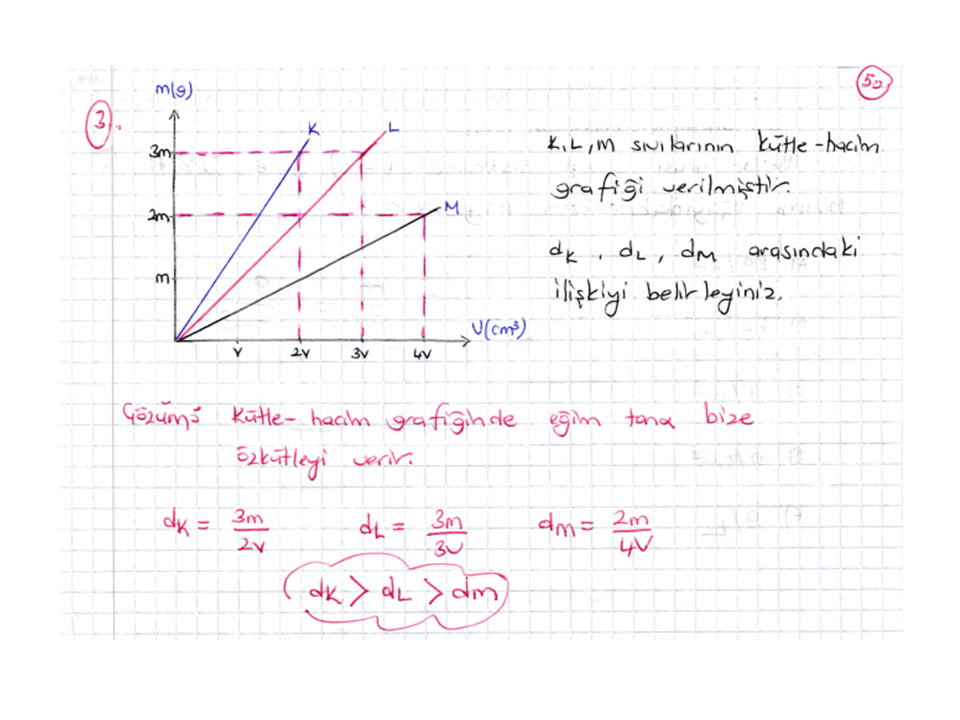 50
3.
m(g)
K
L
M
3m
2m
m
V
2V
3V
4V
V(cm³)
K, L, M sıvılarının kütle-hacim
grafiği verilmiştir.
dK, dL, dM arasındaki
ilişkiyi belirleyiniz.
Çözüm: Kütle-hacim grafiğinde eğim tanα bize
özkütleyi verir.
dK = 3m/2V dL = 3m/3V dM = 2m/4V
dK > dL > dM